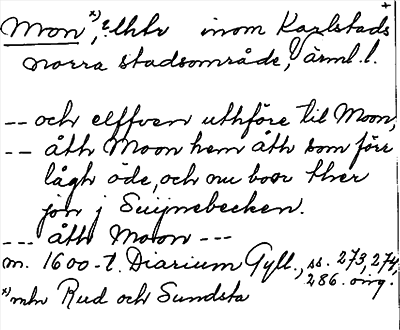 Mon *), ? Ekhr inom Karlstads +
norra stadsområde, Värml. l.
-- och elffven uthföre til Moon,
-- åth Moon hem åth som förr
lågh öde, och nu boor ther
jon j Suijnebecken.
--- åth Moon ---
m. 1600-t. Diarium Gyll., ss. 273, 274,
286. orig.
*) mhr Rud och Sundsta